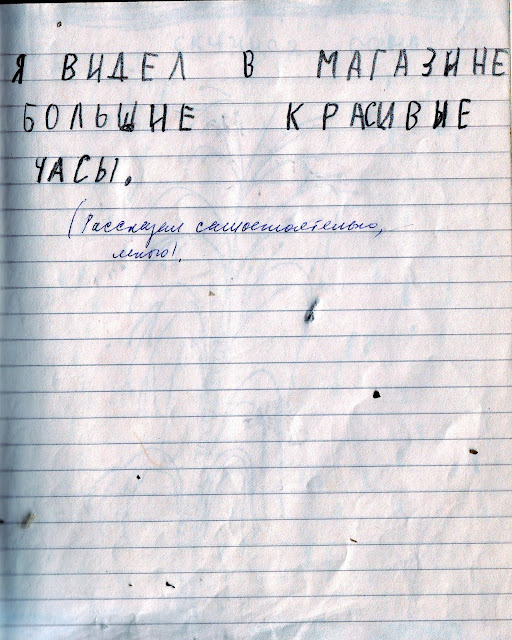 Я ВИДЕЛ В МАГАЗИНЕ
БОЛЬШИЕ КРАСИВЫЕ
ЧАСЫ.
(Рассказал самостоятельно,
много!.